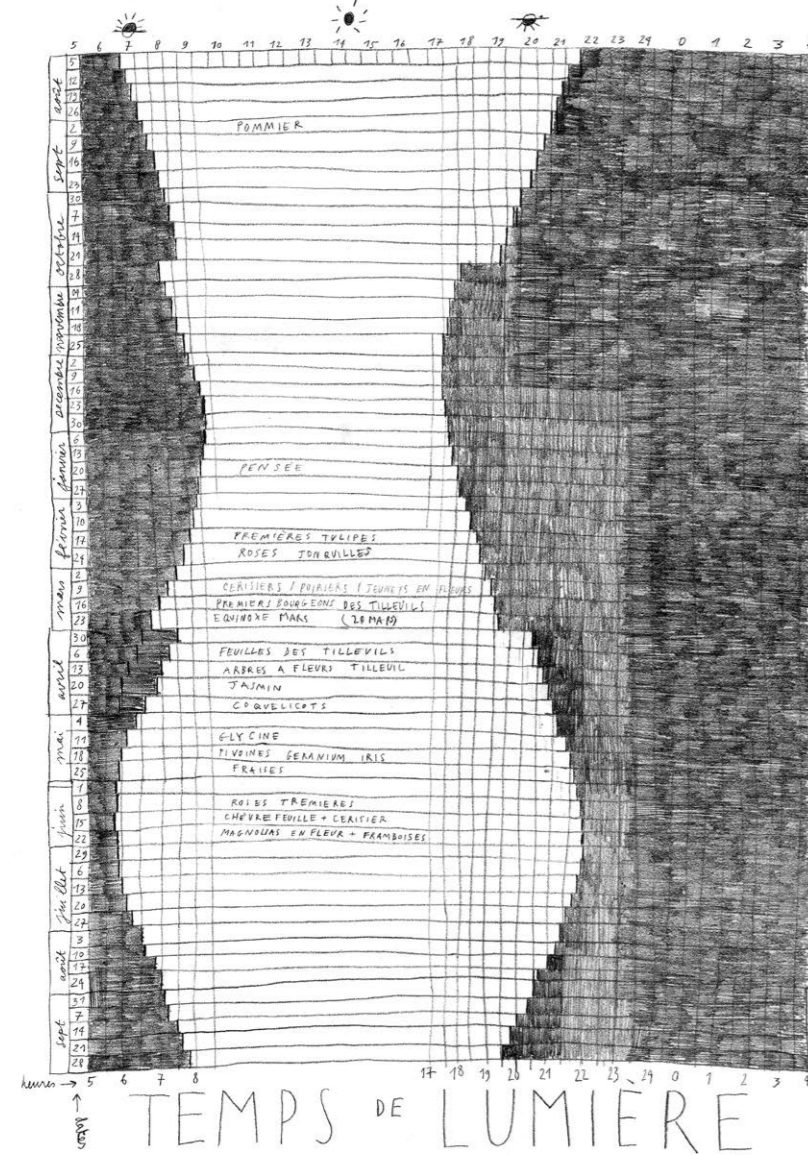 5 6 7 8 9 10 11 12 13 14 15 16 17 18 19 20 21 22 23 24 0 1 2 3
août
5
12
19
26
sept
2
9
16
23
30
octobre
7
14
21
28
novembre
04
11
18
25
décembre
2
9
16
23
30
janvier
6
13
20
27
février
3
10
17
24
mars
2
9
16
23
30
avril
6
13
20
27
mai
4
11
18
25
juin
1
8
15
22
29
juillet
6
13
20
27
août
3
10
17
24
31
sept
7
14
21
28
POMMIER
PENSÉE
PREMIÈRES TULIPES
ROSES JONQUILLES
CERISIERS / POIRIERS / JEUNETS EN FLEURS
PREMIERS BOURGEONS DES TILLEULS
EQUINOXE MARS (20 MARS)
FEUILLES DES TILLEULS
ARBRES A FLEURS TILLEUL
JASMIN
COQUELICOTS
GLYCINE
PIVOINES GERANIUM IRIS
FRAISES
ROSES TREMIERES
CHÈVREFEUILLE + CERISIER
MAGNOLIAS EN FLEUR + FRAMBOISES
heures → 5 6 7 8 17 18 19 20 21 22 23 24 0 1 2 3 4
← dates
TEMPS DE LUMIÈRE